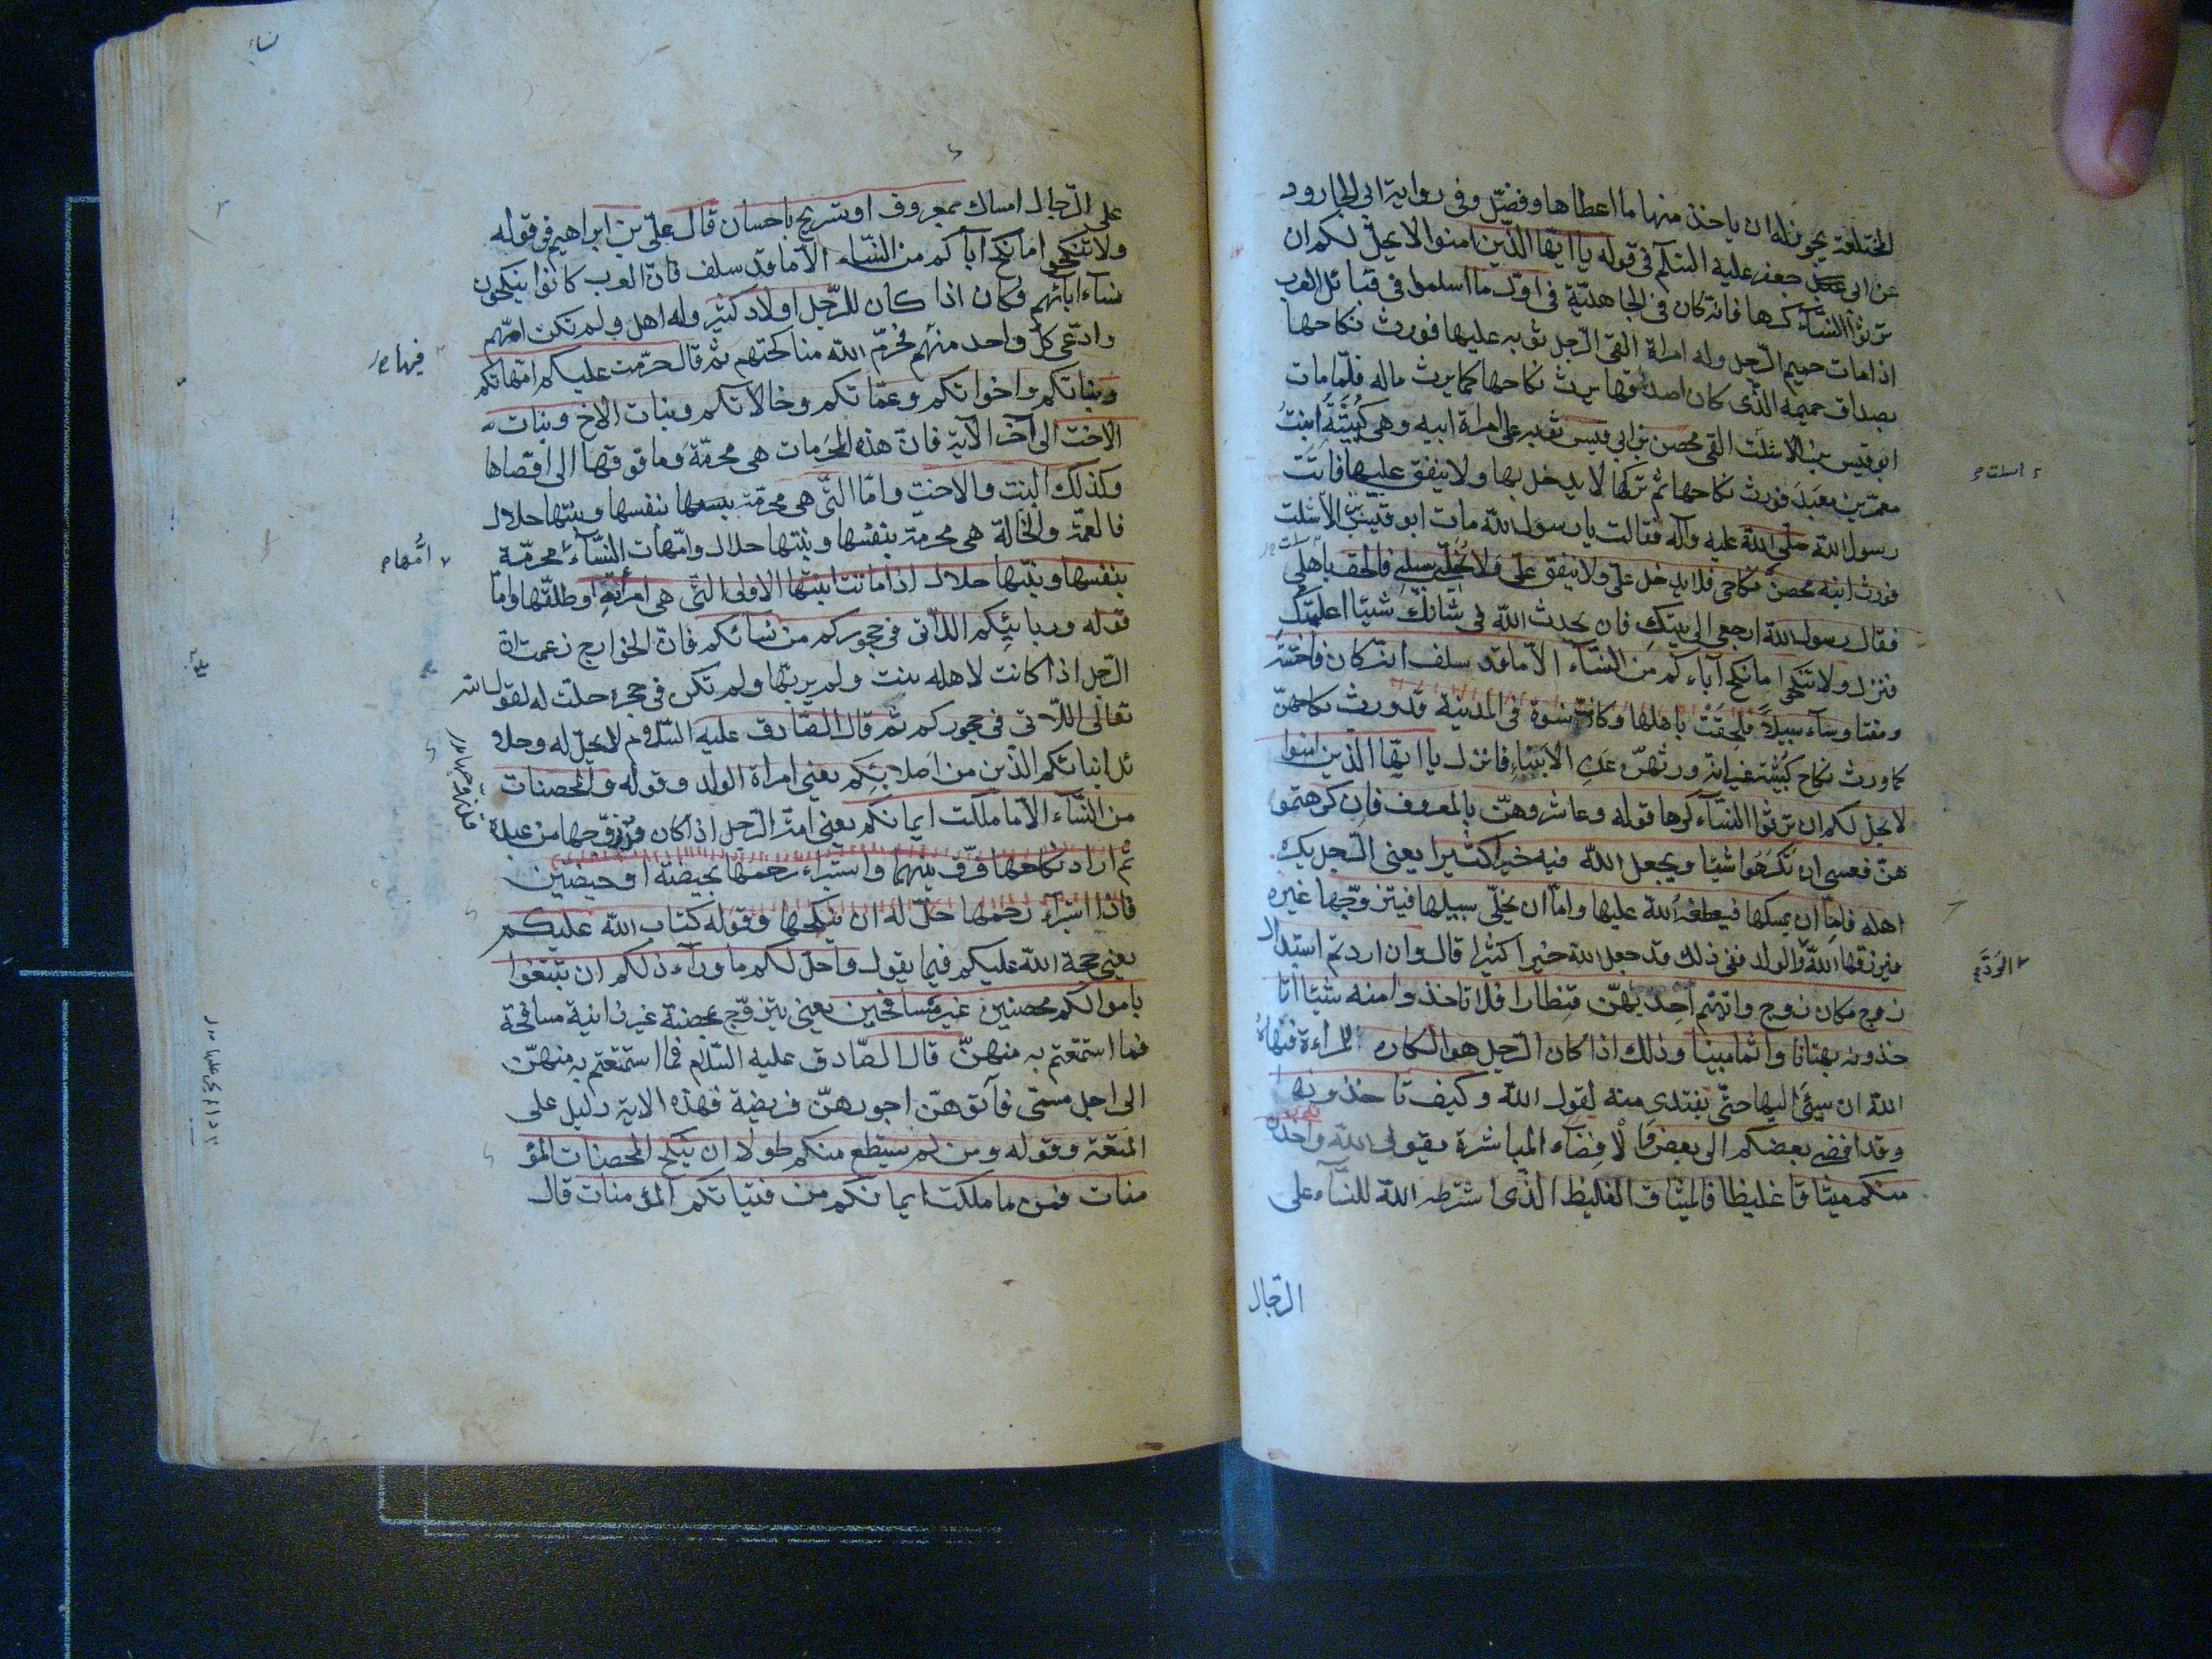 المختلعة يجوز له ان ياخذ منها ما اعطاها وفضّل وفى رواية ابى الجارود
عن ابى جعفر عليه السّلم فى قوله يا ايّها الذّين امنوا لا يحلّ لكم ان
ترثوا النّسآء كرها فانّه كان فى الجاهليّة فى اوّل ما اسلموا فى قبائل العرب
اذا مات حميم الرّجل وله امراة القى الرّجل ثوبه عليها فورث نكاحها
بصداق حميمه الذّى كان اصدقها يرث نكاحها كما يرث ماله فلمّا مات
ابو قيس بن الاسلت القى محصن بن ابى قيس ثوبه على امراة ابيه وهى كُبيثة ابنتُ
معمر بن معبد فورث نكاحها ثمّ تركها لا يدخل بها ولا ينفق عليها فاتت
رسول الله صلّى اللّه عليه وآله فقالت يا رسول اللّه مات ابو قيس بن الاسلت
فورث ابنه محصن نكاحى فلا يدخل علىّ ولا ينفق علىّ ولا يُخلّى سبيلى فالحق باهلى
فقال رسول اللّه ارجعى الى بيتكِ فان يحدث اللّه فى شانك شيئا اعلمتكِ
فنزل ولا تنكحوا ما نكح آباءكم من النّسآء الّا ما قد سلف انّه كان فاحشة
ومقتا وسآء سبيلاً فلحقت باهلها وكانت نسوة فى المدينة قد ورث نكاحهنّ
كما ورث نكاح كبيشة غير انّه ورثهنّ عن الابناء فانزل يا ايّها الذّين امنوا
لا يحلّ لكم ان ترثوا النّسآء كرها قوله وعاشروهنّ بالمعروف فان كرهتمو
هنّ فعسى ان تكرهوا شيئا ويجعل اللّه فيه خيرا كثيرا يعنى الرّجل يكره
اهله فامّا ان يمسكها فيعطفه اللّه عليها وامّا ان يخلّى سبيلها فيتزوّجها غيره
فيرزقها اللّه والولد ففى ذلك قد جعل اللّه خيرا كثيرا قال وان اردتم استبدال
زوج مكان زوج واتيتم احديهنّ قنطارا فلا تاخذوا منه شيئا اتا
خذونه بهتانا واثما مبينا وذلك اذا كان الرّجل هو الكاره للمراءة فنهاه
اللّه ان يسىء اليها حتّى يفتدى منه لقول اللّه وكيف تاخذونه
وقد افضى بعضكم الى بعض والافضآء المباشرة يقول اللّه واخذن
منكم ميثاقا غليظا فالميثاق الغليظ الذّى اشترطه اللّه للنّسآء على
الرّجال
على الرّجال امساك بمعروف او تسريح باحسان قال علىّ بن ابراهيم فى قوله
ولا تنكحوا ما نكح آباكم من النّسآء الّا ما قد سلف فانّ العرب كانوا ينكحون
نسآء آبائهم وكان اذا كان للرّجل اولاد كثير وله اهل ولم تكن امّهم
وادّعى كلّ واحد منهم فحرّم اللّه مناكحتهم ثمّ قال حرّمت عليكم امّهاتكم
وبناتكم واخواتكم وعمّاتكم وخالاتكم وبنات الاخ وبنات
الاخت الى آخر الآية فانّ هذه المحرمات هى محرّمة وما فوقها الى اقصاها
وكذلك البنت والاخت وامّا التّى هى محرّمة بنفسها وبنتها حلال
فالعمّة والخالة هى محرمة بنفسها وبنتها حلال وامّهات النّسآء محرّمة
بنفسها وبنتها حلال اذا ماتت ابنتها الاولى التّى هى امراته او طلّقها وامّا
قوله وربائبكم اللّاتى فى حجوركم من نسائكم فانّ الخوارج زعمت انّ
الرّجل اذا كانت لاهله بنت ولم يربّها ولم تكن فى حجره حلّت له لقول اللّه
تعالى اللّاتى فى حجوركم ثم قال الصّادق عليه السّلام لا يحلّ له وحلا
ئل ابنائكم الذّين من اصلابكم يعنى امراة الولد وقوله والمحصنات
من النّسآء الّا ما ملكت ايمانكم يعنى امة الرّجل اذا كان قد زوّجها من عبده
ثم اراد نكاحها فرّق بينهما واستبراء رحمها بحيضة او حيضتين
فاذا استبراء رحمها حلّ له ان ينكحها وقوله كتاب اللّه عليكم
يعنى حجة اللّه عليكم فيما يقول واحلّ لكم ما ورآء ذلكم ان تبتغوا
باموالكم محصنين غير مسافحين يعنى يتزوّج بمحصنة غير زانية مسافحة
فما استمتعتم به منهنّ قال الصّادق عليه السّلام فما استمتعتم به منهنّ
الى اجل مسمّى فآتوهنّ اجورهنّ فريضة فهذه الاية دليل على
المتعة وقوله ومن لم يستطع منكم طولا ان ينكح المحصنات المؤ
منات فمن ما ملكت ايمانكم من فتياتكم المؤمنات قال
فيها
امّهات
نساء